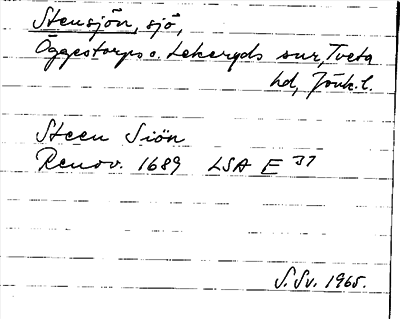 Stensjön, sjö,
Öggestorps o. Lekeryds snr, Tveta
hd, Jönk.l.
Steen Siön
Renov. 1689 LSA E 37
S. Sv. 1965.